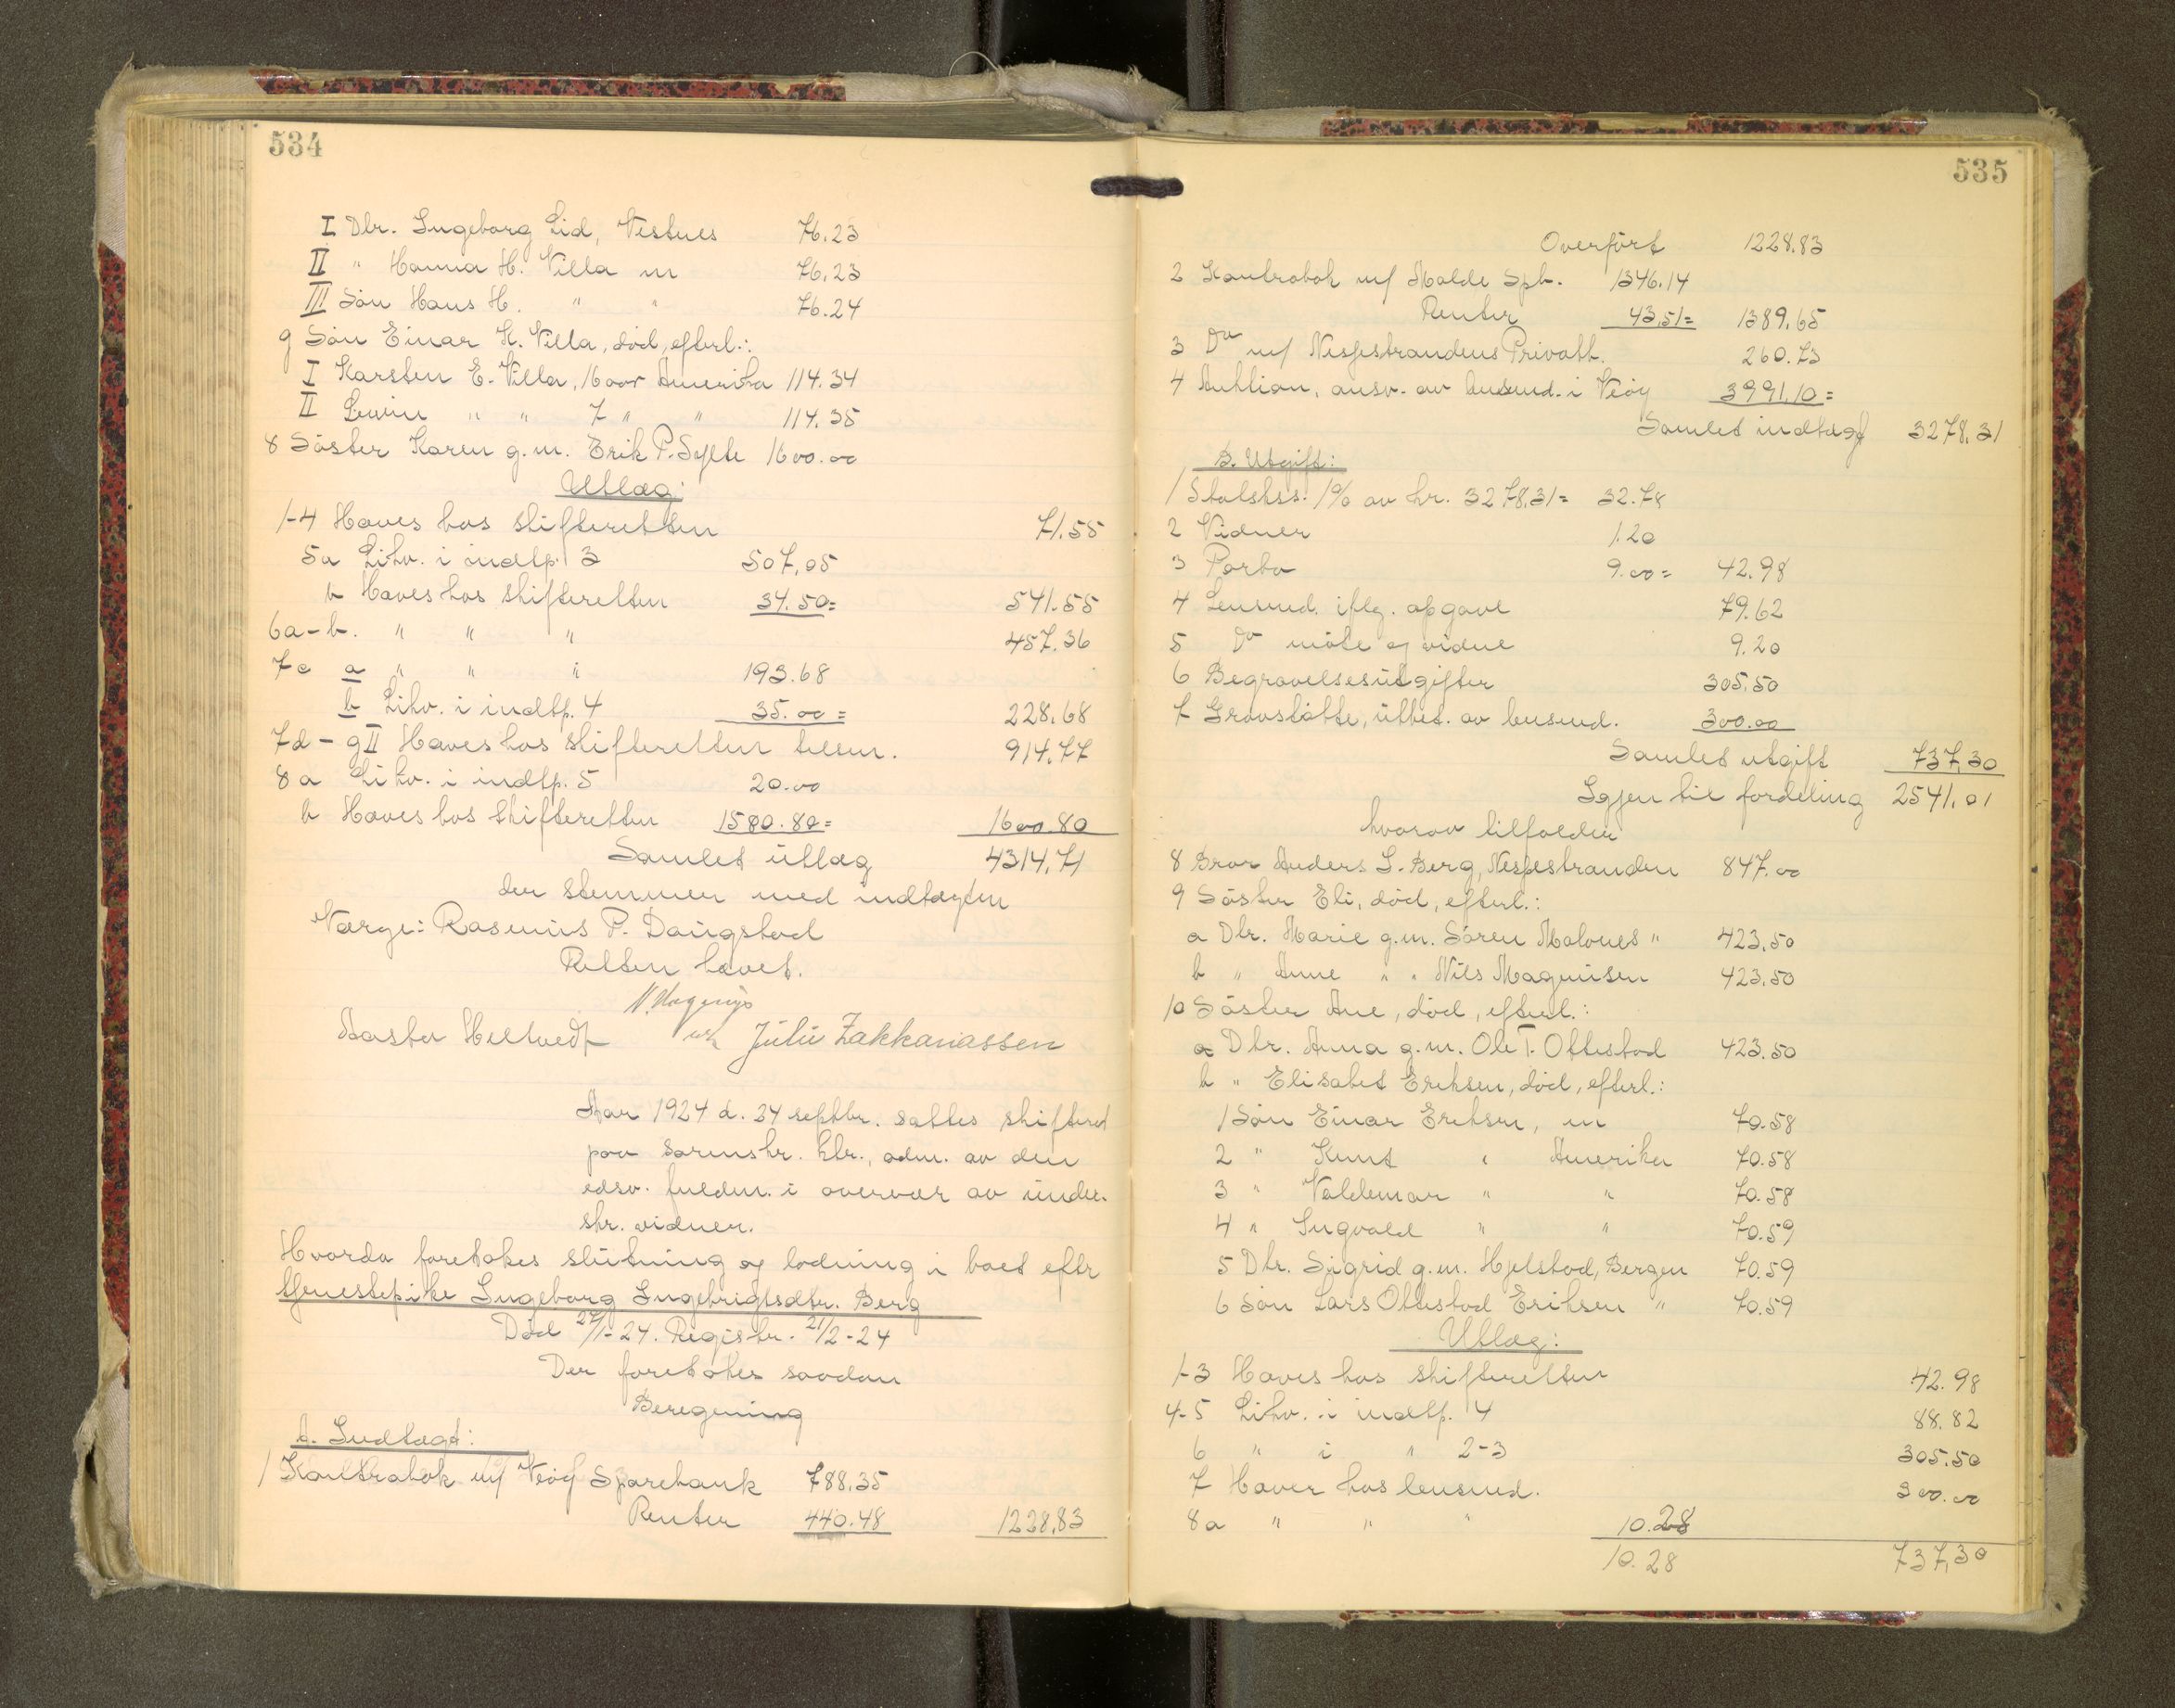 534
I Dtr. Ingeborg Lid, Vestnes 76.23
II " Hanna H. Villa m 76.23
III Søn Hans H. " " 76.24
g Søn Einar K. Villa, død, efterl.:
I Karsten E. Villa, 16 aar Amerika 114.34
II Lewin " " 7 " " 114.35
8 Søster Karen g.m. Erik P. Sylte 1600.00
Utlæg:
1-4 Haves hos skifteretten 71.55
5a Likv. i indtp. 3 507,05
b Haves hos skifteretten 34.50= 541.55
6a-b. " " " 457.36
7c a " " " 193.68
b Likv. i indtp. 4 35.00= 228.68
7d-gII Haves hos skifteretten tilsm. 914.77
8a Likv. i indtp. 5 20.00
b Haves hos skifteretten 1580.80= 1600.80
Samlet utlæg 4314.71
der stemmer med indtægten
Værge: Rasmus P. Daugstad
Retten hævet.
Aasta Heltvedt Julie Zakkariassen
Aar 1924 d. 24 septbr. sattes skifteret
paa sorenskr. ktr., adm. av den
edsv. fuldm. i overvær av under-
skr. vidner.
Hvorda foretokes slutning og lodning i boet eftr
tjenestepike Ingeborg Ingebrigtsdtr. Berg
Død 27/1-24. Registr. 21/2-24
Der foretokes saadan
Beregning
A. Indtægt:
1 Kontrabok m/ Veøy Sparebank 788.35
Renter 440.48 1228,83
535
Overført 1228.83
2 Kontrabok m/ Molde Spb. 1346.14
Renter 43,51= 1389,65
3 Do m/ Nesjestrandens Privatb. 260.73
4 Auktion, ansv. av lensmd. i Veøy 3991,10=
Samlet indtægt 3278,31
B. Utgift:
1 Statskss. 1% av kr. 3278,31= 32.78
2 Vidner 1.20
3 Porto 9.00= 42.98
4 Lensmd. iflg. opgave 79.62
5 Do møte og vidne 9.20
6 Begravelsesutgifter 305.50
7 Gravstøtte, utbet. av lensmd. 300.00
Samlet utgift 737,30
Igjen til fordeling 2541.01
hvorav tilfalder
8 Bror Anders I. Berg, Nesjestranden 847.00
9 Søster Eli, død, efterl.:
a Dtr. Marie g.m. Søren Malones " 423.50
b " Anne " " Nils Magnusen 423.50
10 Søster Ane, død, efterl.:
a Dtr. Anna g.m. Ole T. Ottestad 423.50
b " Elisabet Eriksen, død, efterl.:
1 Søn Einar Eriksen, m 70.58
2 " Knut " Amerika 70.58
3 " Valdemar " " 70.58
4 " Ingvald " " 70.59
5 Dtr. Sigrid g.m. Hjelstad, Bergen 70.59
6 Søn Lars Ottestad Eriksen " 70.59
Utlæg:
1-3 Haves hos skifteretten 42.98
4-5 Likv. i indtp. 4 88.82
6 " i " 2-3 305.50
7 Haver hos lensmd. 300.00
8a " " " 10.28
10.28 737,30